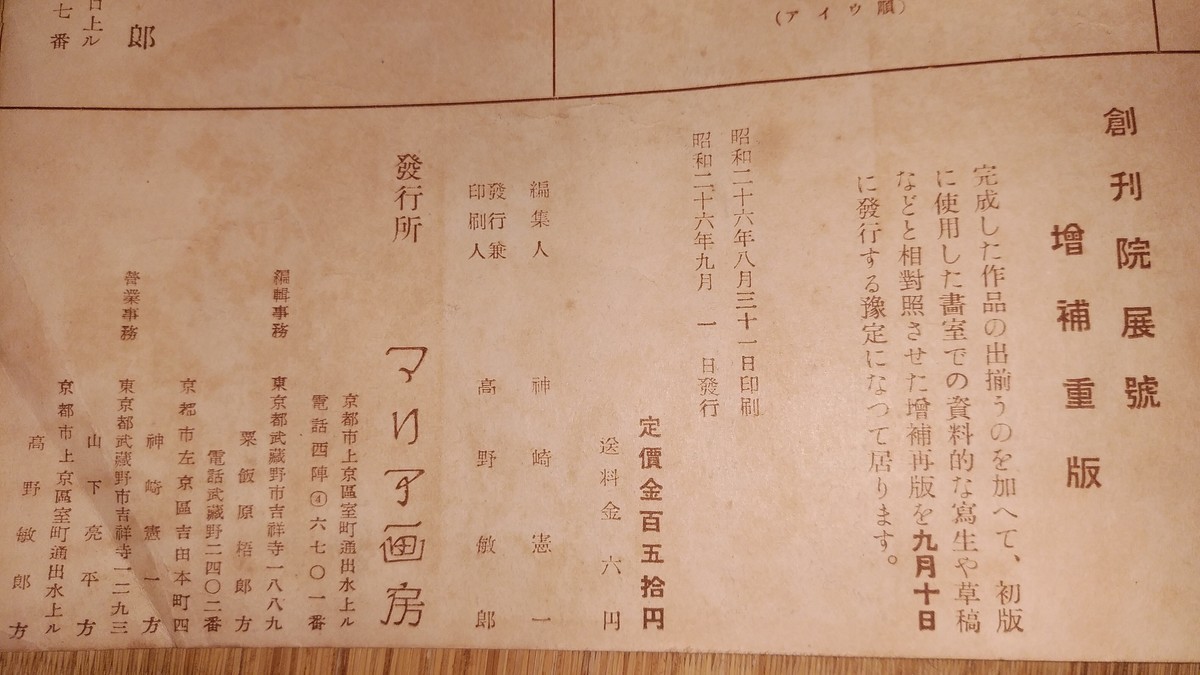 (アイウ順)
郎
日上ル
七番
創刊院展號
增補重版
完成した作品の出揃うのを加へて、初版
に使用した畫室での資料的な寫生や草稿
などと相對照させた增補再版を九月十日
に發行する豫定になつて居ります。
昭和二十六年八月三十一日印刷
昭和二十六年九月 一 日發行
定價金百五拾円
送料金六円
編集人 神崎憲一
發行兼
印刷人 高野敏郎
發行所 マリア画房
京都市上京區室町通出水上ル
電話西陣④六七〇一番
編輯事務 東京都武藏野市吉祥寺一八八九
粟飯原梧郎方
電話武藏野二四〇二番
京都市左京區吉田本町四
神崎憲一方
營業事務 東京都武藏野市吉祥寺一二九三
山下亮平方
京都市上京區室町通出水上ル
高野敏郎方